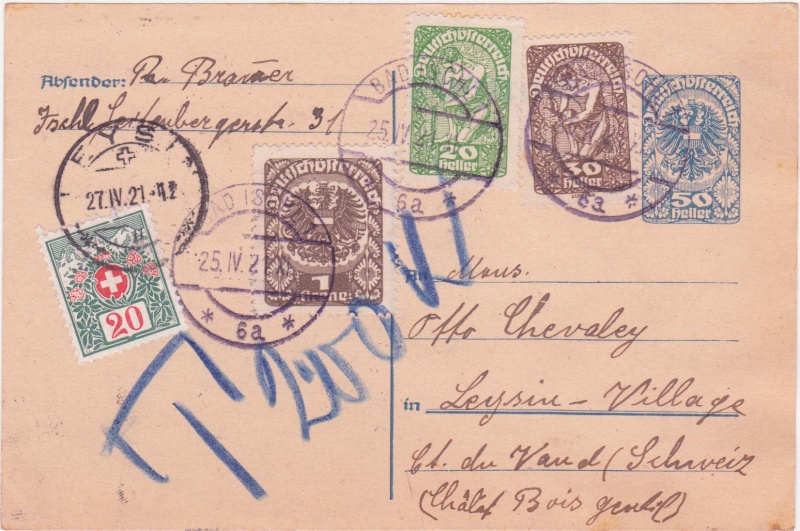 Deutschösterreich
20
Heller
Deutschösterreich
30
Heller
Deutschösterreich
50
Heller
Absender: Brauner
Ischl 31
BAD ISCHL 1
25.IV.21
6a
6a
27.IV.21-12
Deutschösterreich
1
Krone
BAD ISCHL
25.IV.21
* 6a *
20
T
An Mons.
Otto Chevaley
in Leysin - Village
Ct. du Vaud (Schweiz
(Châlet Bois gentil)